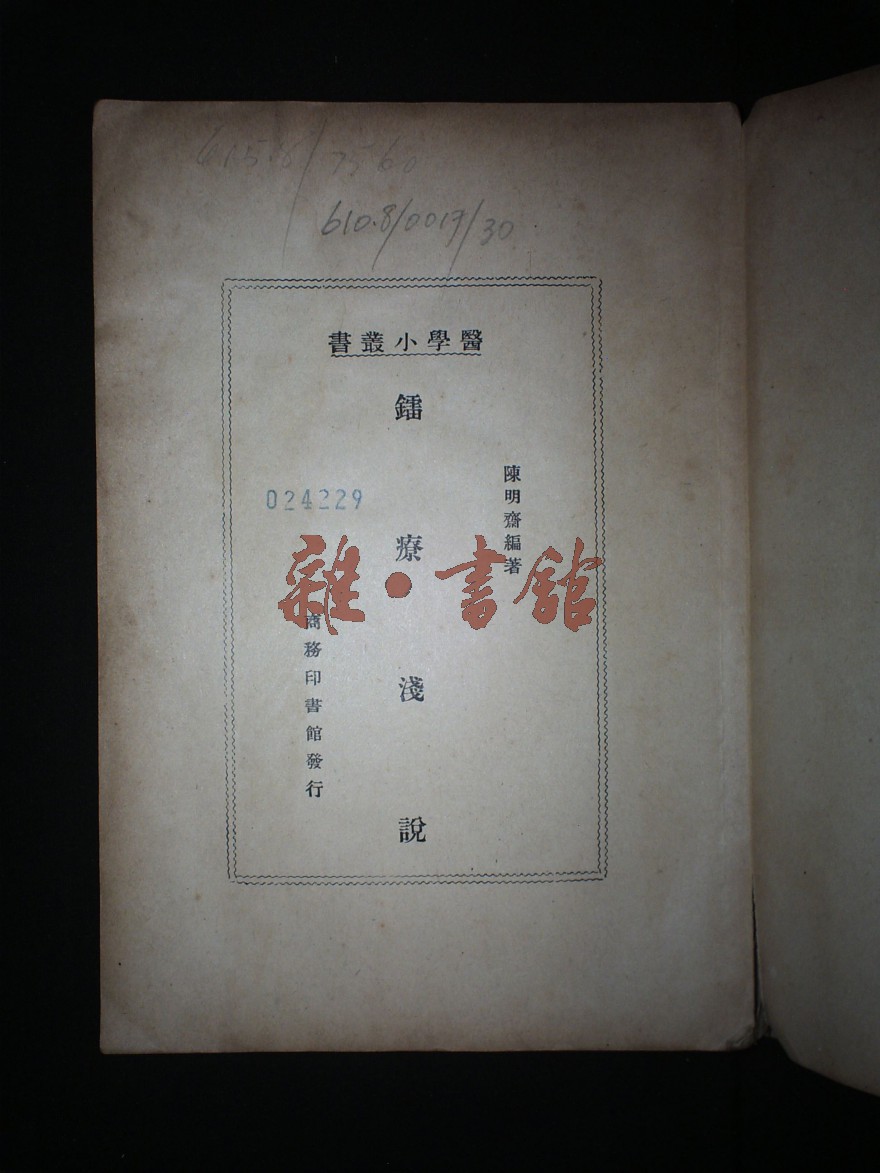 615.8/7560
610.8/0019/30
書叢小學醫
陳明齋編著
鐳療淺說
024229
商務印書館發行
雜·書館